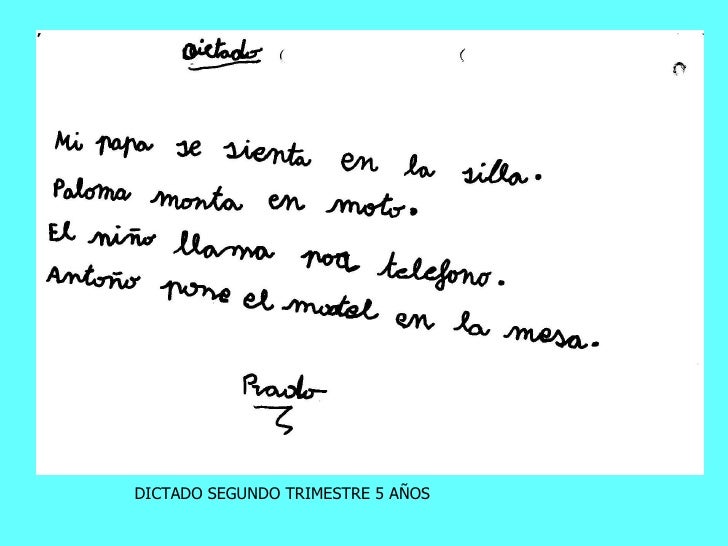 Dictado
Mi papa se sienta en la silla.
Paloma monta en moto.
El niño llama por telefono.
Antoño pone el mantel en la mesa.
Prado
DICTADO SEGUNDO TRIMESTRE 5 AÑOS